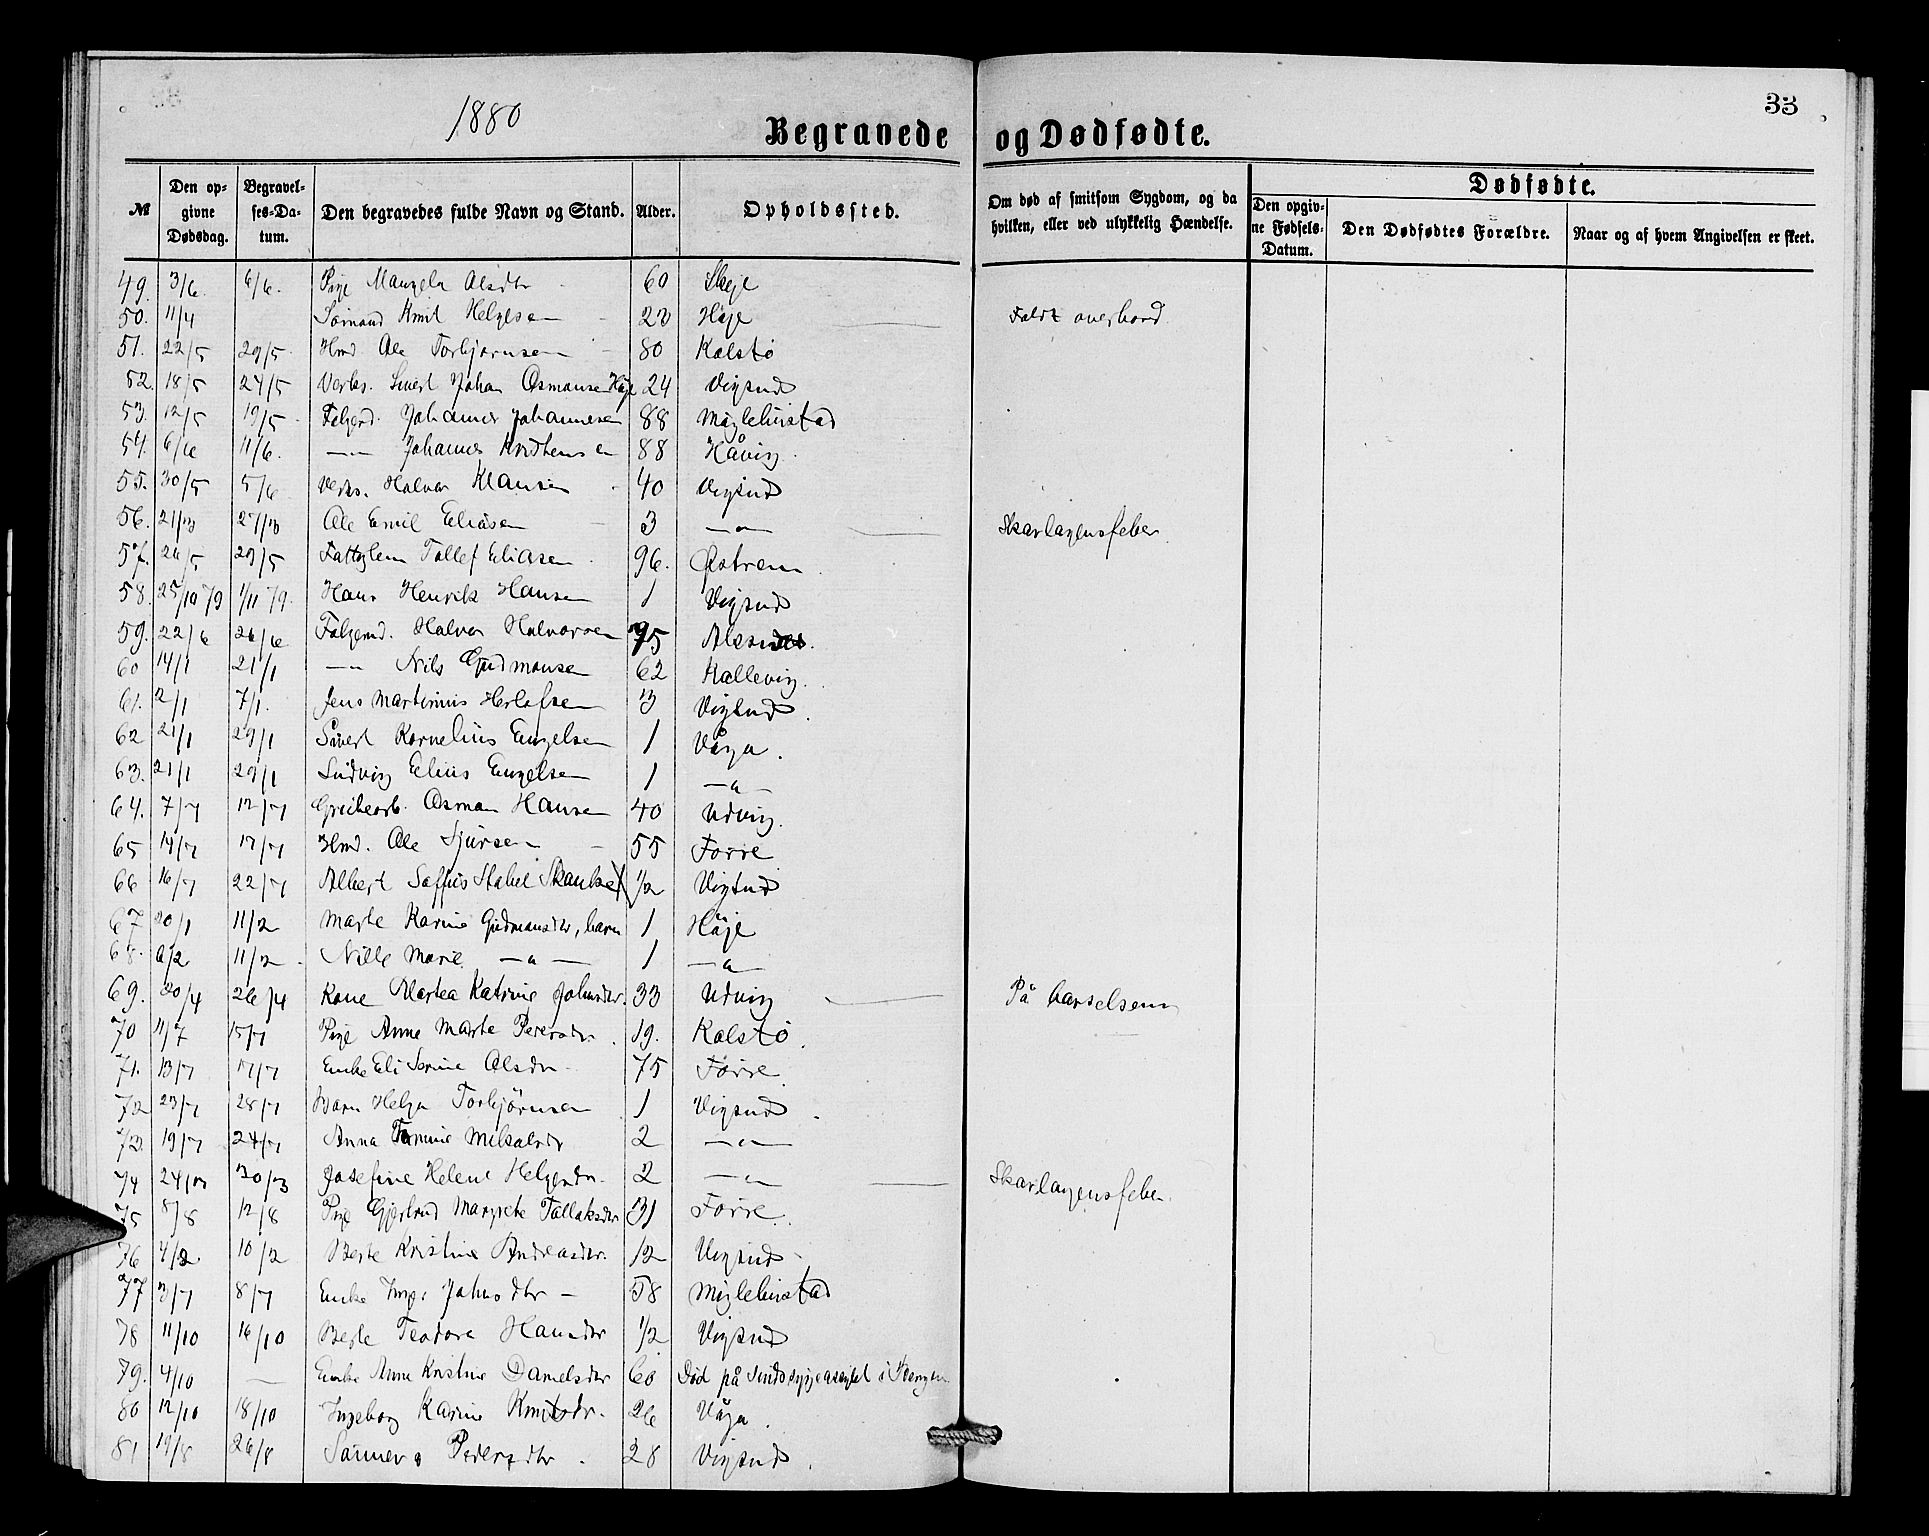 1880
33
Begravede og Dødfødte.
№ Den opgivne Dødsdag. Begravelses-Datum. Den begravedes fulde Navn og Stand. Alder. Opholdssted. Om død af smitsom Sygdom, og da hvilken, eller ved ulykkelig Hændelse. Dødfødte.
Den opgivne Fødsels-Datum. Den Dødfødtes Forældre. Naar og af hvem Angivelsen er skeet.
49. 3/6 6/6. Pige Olsdtr 60
50. 11/4 Knut Helgesen Håje Faldt overbord.
51. 22/5 29/5 Ole Torbjørnsen 80 Kalstø
52. 18/5 24/5 Verks. Sivert Johan Osmunsen Håje 24 Vigsnes
53. 12/5 19/5 Johannes Johannesen 88
54. 6/6 11/6. —"— Johannes 88 Håvig
55. 30/5 5/6 Verks. Halvor Klausen 40 Vigsnes
56. 21/3 27/3 Ole Emil Eliasen 3 —"— Skarlagensfeber.
57. 26/5 29/5 Fattiglem Tollef Eliasen 96. Østrem
58. 25/10 79 1/11 79. Hans Henrik Hansen 1 Vigsnes
59. 22/6 26/6 Halvor Halvorsen 75
60 14/1 21/1 —"— Nils Gudmunsen 62 Kallevig
61. 2/1 7/1. Jens Martinius Herlofsen 3 Vigsnes
62 21/1 29/1 Sivert Kornelius Engelsen 1 Våga.
63. 21/1 29/1 Ludvig Elius Engelsen 1 —"—
64. 7/7 12/7 Grubearb. Osmun Hansen 40 Udvig.
65 14/7 17/7 Ole Sjursen 55 Førre
66 16/7 22/7 Albert Stabel Skanke 1/2 Vigsnes
67 20/1 11/2 Marte Karine Gudmunsdtr, barn 1 Håje
68. 11/2 Nille Marie —"— 1 —"—
69. 20/4 26/4 Kone Martea Katrine Johnsdtr. 33 Udvig På barselseng
70 11/7 15/7 Pige Anne Marte Pedersdtr. 19. Kalstø
71. 13/7 17/7 Enke Eli Serine Olsdtr. 75 Førre
72 23/7 28/7 Barn Helga Torbjørnsen 1 Vigsnes.
73. 19/7 24/7 Anna 2 —"—
74 24/3 30/3 Josefine Helene Helgesdtr. 2 —"— Skarlagensfeber.
75 8/8 12/8 Pige Gjertrud Margrete Tollaksdtr 31 Førre.
76 4/2 10/2 Berte Kristine Andreasdtr. 12 Vigsnes
77 3/7 8/7 Enke Johnsdtr — 58
78 11/10 16/10 Berte Teodora Hansdtr 1/2 Vigsnes
79. 4/10 — Enke Anne Kristine Danielsdtr 60 Død på Sindssygeasylet i
80 12/10 18/10 Ingeborg Karine Knutsdtr. 26 Våga.
81 19/8 26/8 Pedersdtr. 28 Vigsnes.